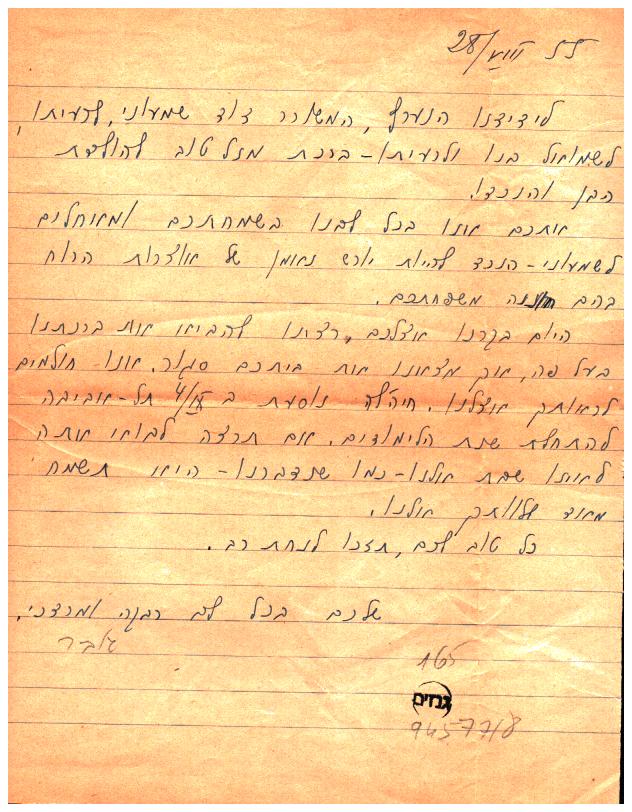 28/VIII
לידידנו הנערץ, המשורר דוד שמעוני, לרעיתו,
לשמואל בנו ולרעיתו - ברכת מזל טוב להולדת
הבן והנכד!
אתכם אנו בכל לבנו בשמחתכם ומאחלים
לשמעוני-הנכד להיות יורש נאמן של אוצרות הרוח
בהם חוננה משפחתכם.
היום בקרנו אצלכם, רצינו להביא את ברכתנו
בעל פה, אך מצאנו את ביתכם סגור. אנו חולמים
לראותך אצלנו. חיה'לה נוסעת ב 4/IX תל-אביבה
להתחלת שנת הלימודים. אם תרצה לבוא אתה
לאיזו שבת אלינו - כמו שנדברנו - היא תשמח
מאוד ללוותך אלינו.
כל טוב לכם, תזכו לנחת רב.
שלכם בכל לב רבקה ומרדכי.
165
גנזים
945771/8